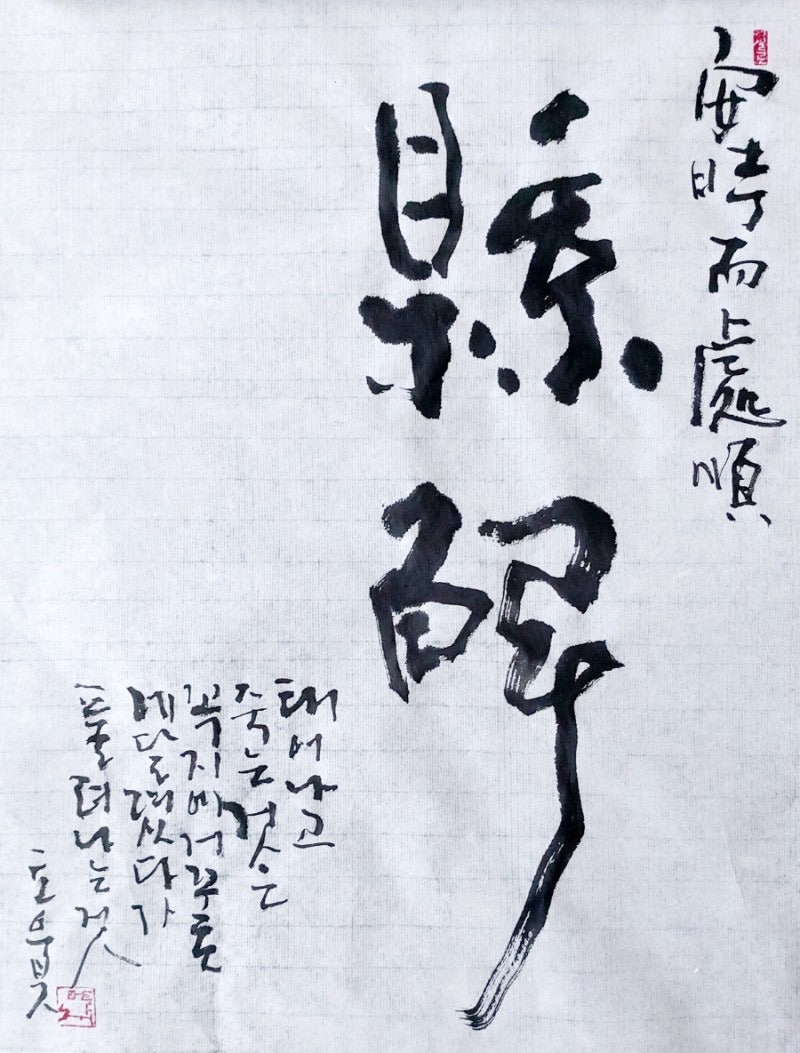 安時而處順
縣解
태어나고
죽는 것은
꼭지에 거꾸로
매달렸다가
풀려나는 것